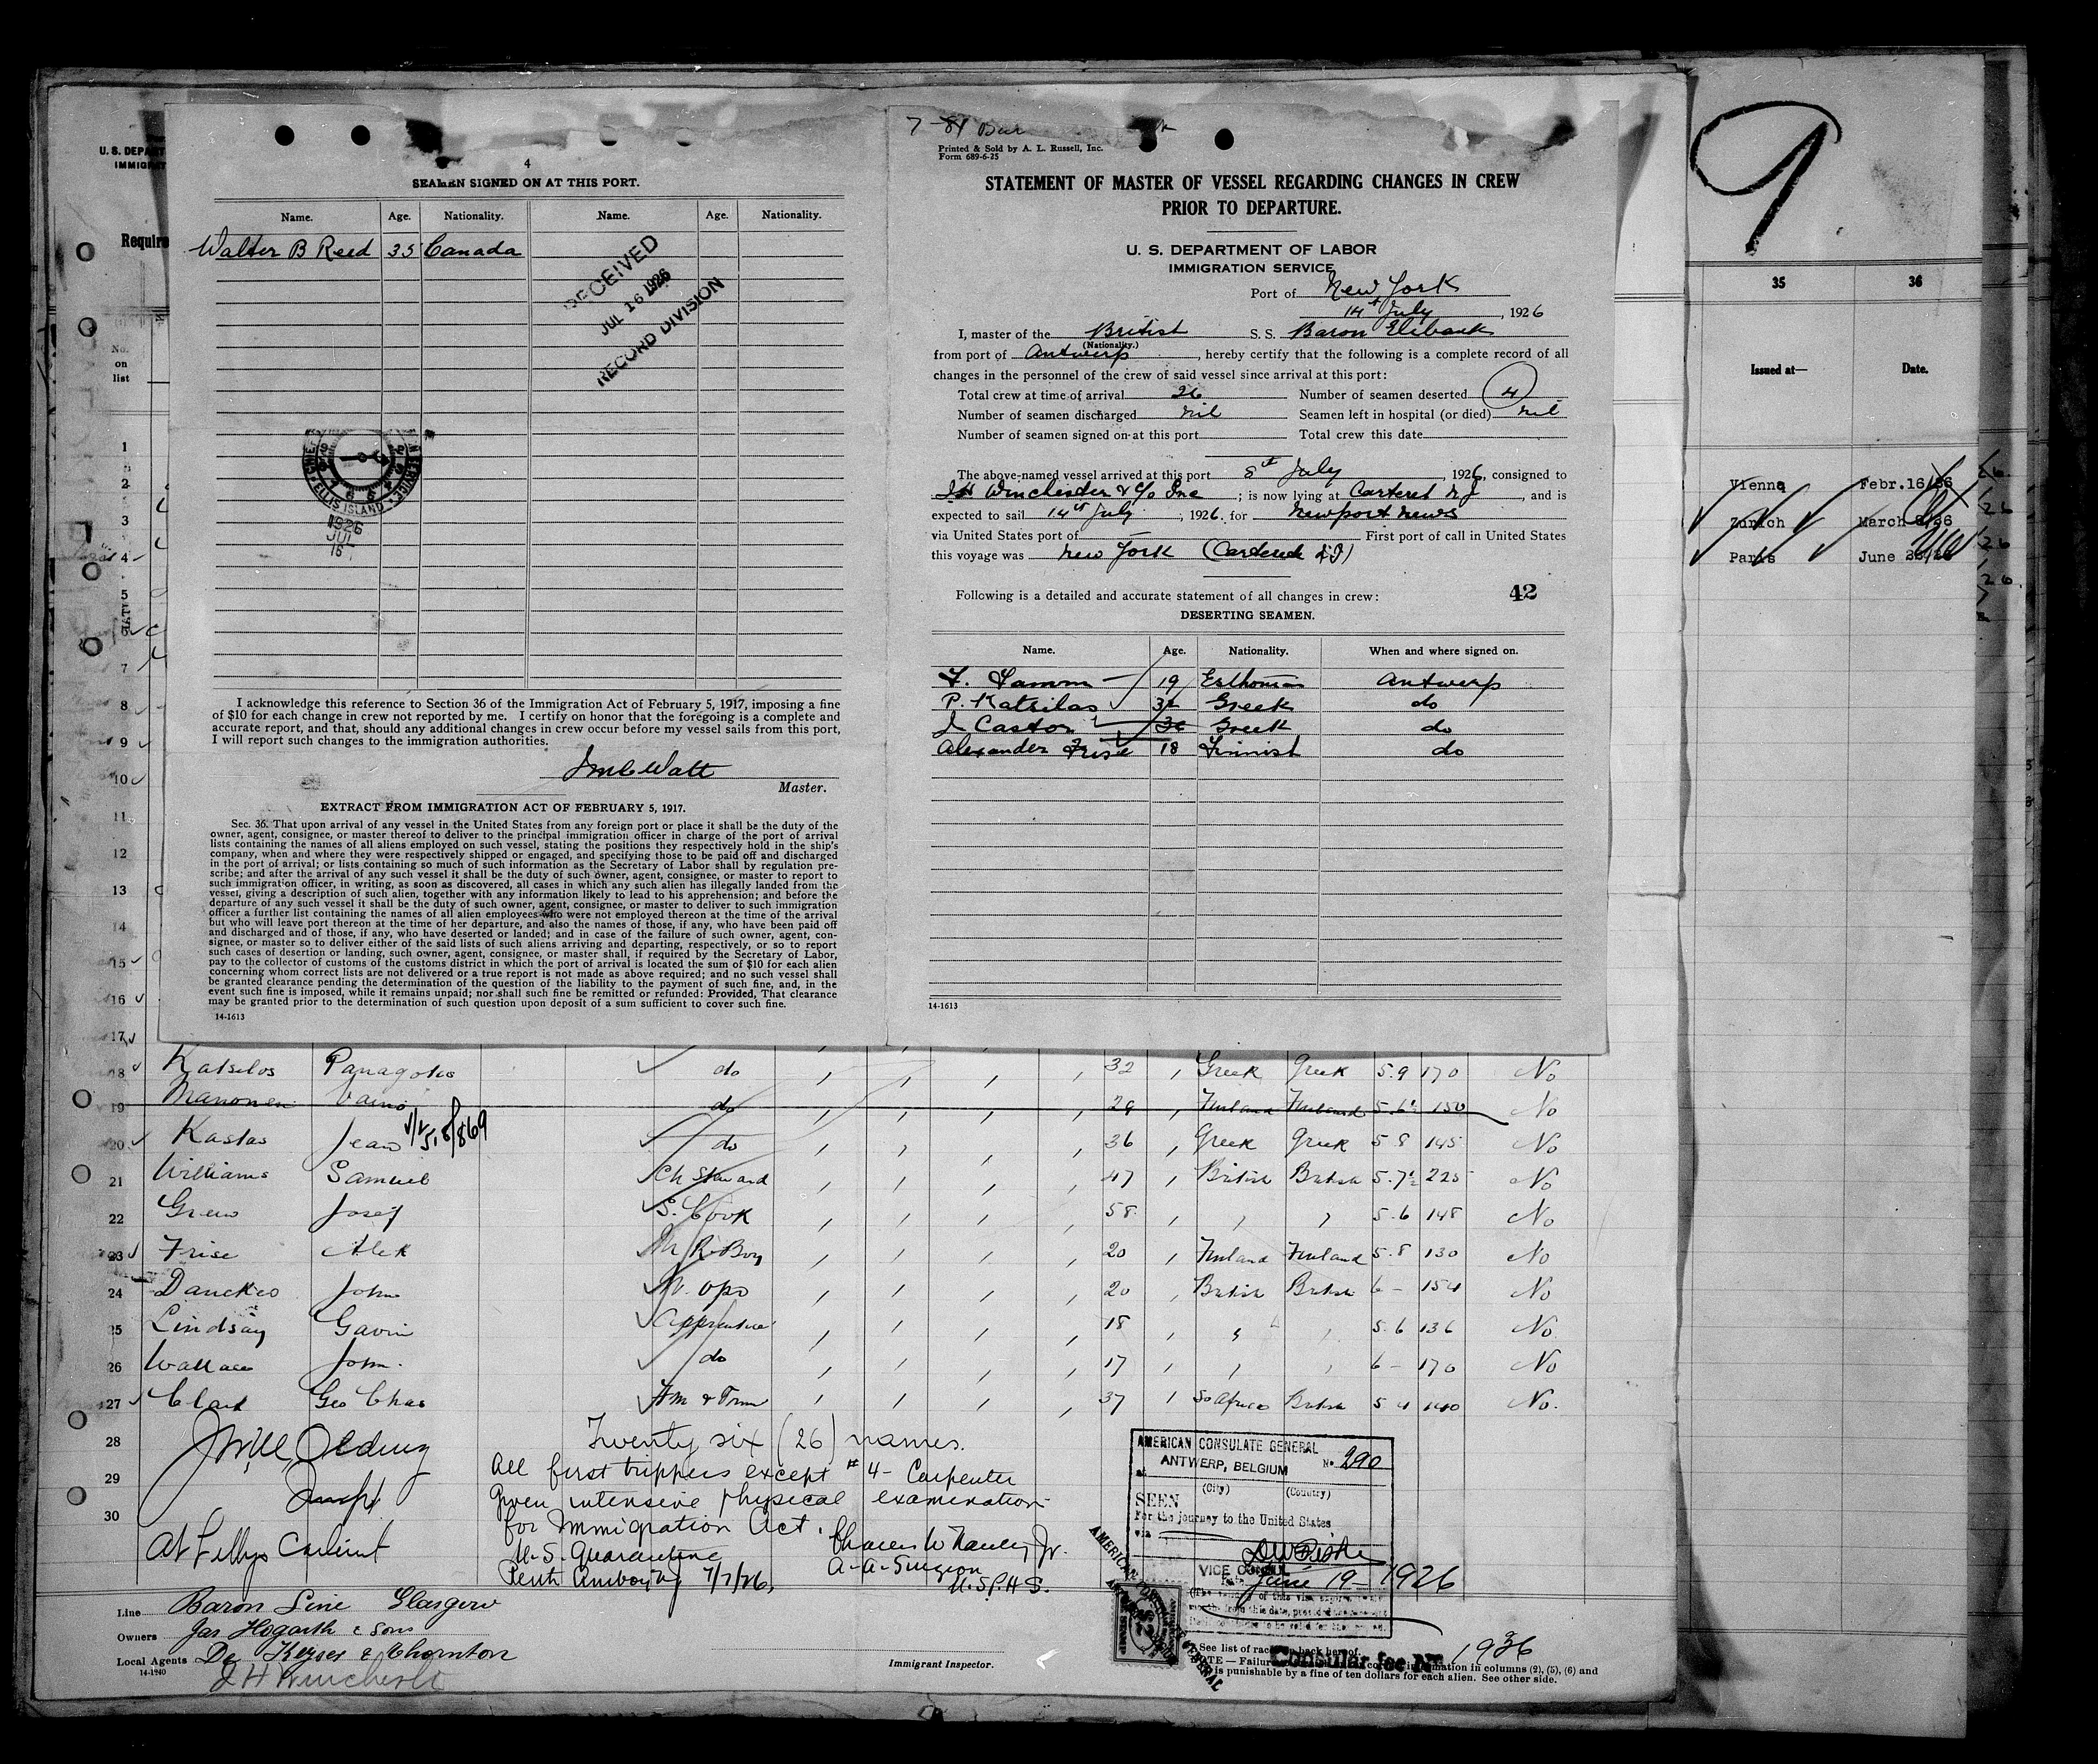 U. S. DEPA
IMMIGRAT
Require
No.
on
list
4
SEAMEN SIGNED ON AT THIS PORT.
Name. Age. Nationality. Name. Age. Nationality.
Walter B Reed 35 Canada
RECEIVED
JUL 16 1926
RECORD DIVISION
ELLIS ISLAND
1926
JUL
16
I acknowledge this reference to Section 36 of the Immigration Act of February 5, 1917, imposing a fine
of $10 for each change in crew not reported by me. I certify on honor that the foregoing is a complete and
accurate report, and that, should any additional changes in crew occur before my vessel sails from this port,
I will report such changes to the immigration authorities.
Master.
EXTRACT FROM IMMIGRATION ACT OF FEBRUARY 5, 1917.
Sec. 36. That upon arrival of any vessel in the United States from any foreign port or place it shall be the duty of the
owner, agent, consignee, or master thereof to deliver to the principal immigration officer in charge of the port of arrival
lists containing the names of all aliens employed on such vessel, stating the positions they respectively hold in the ship's
company, when and where they were respectively shipped or engaged, and specifying those to be paid off and discharged
in the port of arrival; or lists containing so much of such information as the Secretary of Labor shall by regulation pre-
scribe; and after the arrival of any such vessel it shall be the duty of such owner, agent, consignee, or master to report to
such immigration officer, in writing, as soon as discovered, all cases in which any such alien has illegally landed from the
vessel, giving a description of such alien, together with any information likely to lead to his apprehension; and before the
departure of any such vessel it shall be the duty of such owner, agent, consignee, or master to deliver to such immigration
officer a further list containing the names of all alien employees who were not employed thereon at the time of the arrival
but who will leave port thereon at the time of her departure, and also the names of those, if any, who have been paid off
and discharged and of those, if any, who have deserted or landed; and in case of the failure of such owner, agent, con-
signee, or master so to deliver either of the said lists of such aliens arriving and departing, respectively, or so to report
such cases of desertion or landing, such owner, agent, consignee, or master shall, if required by the Secretary of Labor,
pay to the collector of customs of the customs district in which the port of arrival is located the sum of $10 for each alien
concerning whom correct lists are not delivered or a true report is not made as above required; and no such vessel shall
be granted clearance pending the determination of the question of the liability to the payment of such fine, and, in the
event such fine is imposed, while it remains unpaid; nor shall such fine be remitted or refunded: Provided, That clearance
may be granted prior to the determination of such question upon deposit of a sum sufficient to cover such fine.
14-1613
Printed & Sold by A. L. Russell, Inc.
Form 689-6-25
STATEMENT OF MASTER OF VESSEL REGARDING CHANGES IN CREW
PRIOR TO DEPARTURE.
U. S. DEPARTMENT OF LABOR
IMMIGRATION SERVICE
Port of New York
14th July, 1926
I, master of the British S. S. Baron Elibank
(Nationality.)
from port of Antwerp, hereby certify that the following is a complete record of all
changes in the personnel of the crew of said vessel since arrival at this port:
Total crew at time of arrival 26 Number of seamen deserted 4
Number of seamen discharged nil Seamen left in hospital (or died) nil
Number of seamen signed on at this port Total crew this date
The above-named vessel arrived at this port 8th July, 1926, consigned to
J H Winchester & Co Inc; is now lying at Carteret N J, and is
expected to sail 14th July, 1926, for Newport News
via United States port of — First port of call in United States
this voyage was New York (Carteret NJ)
Following is a detailed and accurate statement of all changes in crew: 42
DESERTING SEAMEN.
Name. Age. Nationality. When and where signed on.
19 Esthonian Antwerp
P. Katsilas 32 Greek do
J Castor 36 Greek do
Alexander Frise 18 Finnish do
14-1613
9
35 36
Issued at— Date.
Vienna Febr.16/26
Zurich March 8/26
Paris June 26/26
1
2
3
4
5
7
8
9
10
11
12
13
14
15
16
17
18 Katsilos Panagotis do 32 Greek Greek 5.9 170 No
19 Manonen Vaino do 29 Finland Finland 5.6½ 150 No
20 Kastas Jean do 36 Greek Greek 5 8 145 No
21 Williams Samuel Ch Steward 47 British British 5.7½ 225 No
22 Grew Josef S. Cook 58 5.6 148 No
23 Frise Alek M. R. Boy 20 Finland Finland 5.8 130 No
24 Danckes John W. Ops 20 British British 6 - 154 No
25 Lindsay Gavin Apprentice 18 5.6 136 No
26 Wallace John. do 17 6 - 170 No
27 Clark Geo Chas Fm & Trm 37 So Africa British 5 4 140 No.
28 Twenty six (26) names.
29 All first trippers except #4 - Carpenter
Given intensive physical examination
30 for Immigration Act.
U. S. Quarantine
Perth Amboy NJ 7/7/26.
A-A-Surgeon
U.S.P.H.S.
AMERICAN CONSULATE GENERAL
at ANTWERP, BELGIUM No 290
(City) (Country)
SEEN
For the journey to the United States
via
VICE CONSUL
June 19 - 1926
Line Baron Line Glasgow
Owners Jas Hogarth & Sons
Local Agents De Keyser & Thornton
14-1240
J H Winchester
Immigrant Inspector.
See list of races on back hereof.
Consular fee No 1936
NOTE — Failure
is punishable by a fine of ten dollars for each alien. See other side.